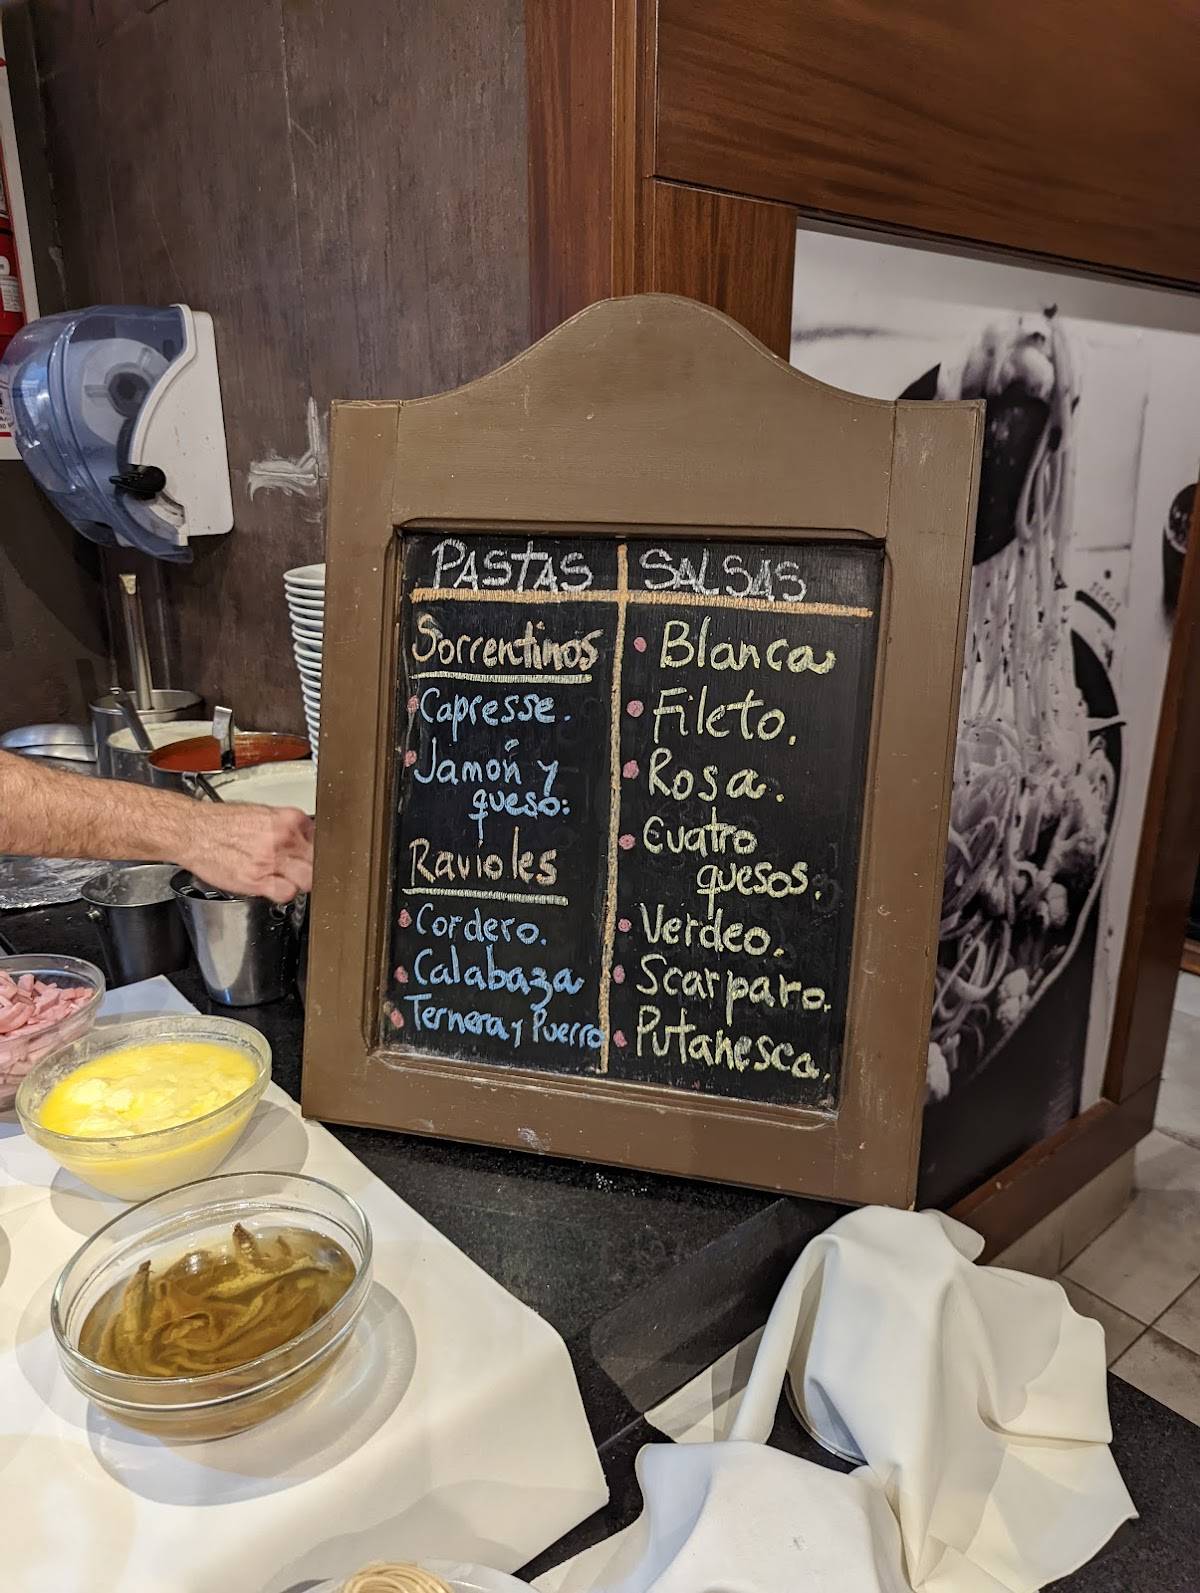 PASTAS
Sorrentinos
Capresse.
Jamón y
queso:
Ravioles
Cordero.
Calabaza
Ternera y Puerro
SALSAS
Blanca
Fileto.
Rosa.
Cuatro
quesos.
Verdeo.
Scarparo.
Putanesca.